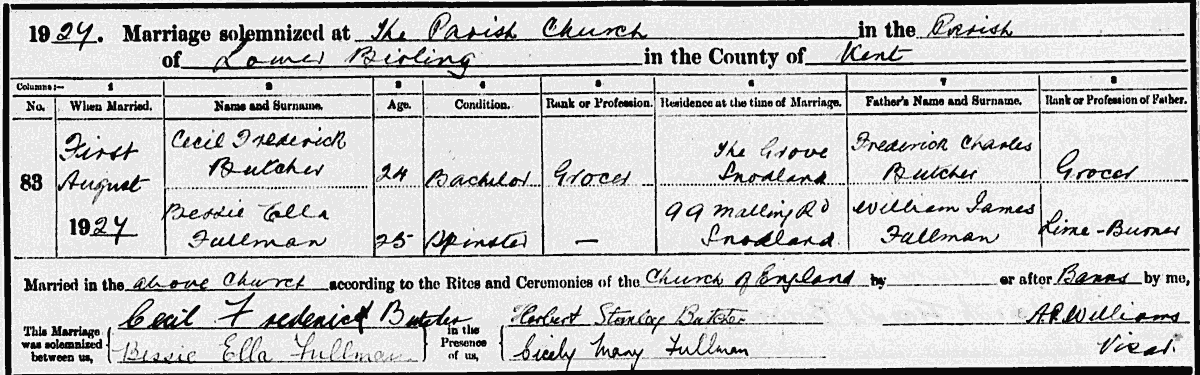 1927. Marriage solemnized at The Parish Church in the Parish
of Lower Birling in the County of Kent
Columns:— 1 2 3 4 5 6 7 8
No. When Married. Name and Surname. Age. Condition. Rank or Profession. Residence at the time of Marriage. Father's Name and Surname. Rank or Profession of Father.
83 First August 1927
Cecil Frederick Butcher 24 Bachelor Grocer The Grove Snodland Frederick Charles Butcher Grocer
Bessie Ella Fullman 25 Spinster — 99 Malling Rd Snodland. William James Fullman Lime-Burner
Married in the above Church according to the Rites and Ceremonies of the Church of England by or after Banns by me,
This Marriage was solemnized between us, Cecil Frederick Butcher in the Presence of us, Herbert Stanley Butcher A.P. Williams
Bessie Ella Fullman Cicely Mary Fullman Vicar.